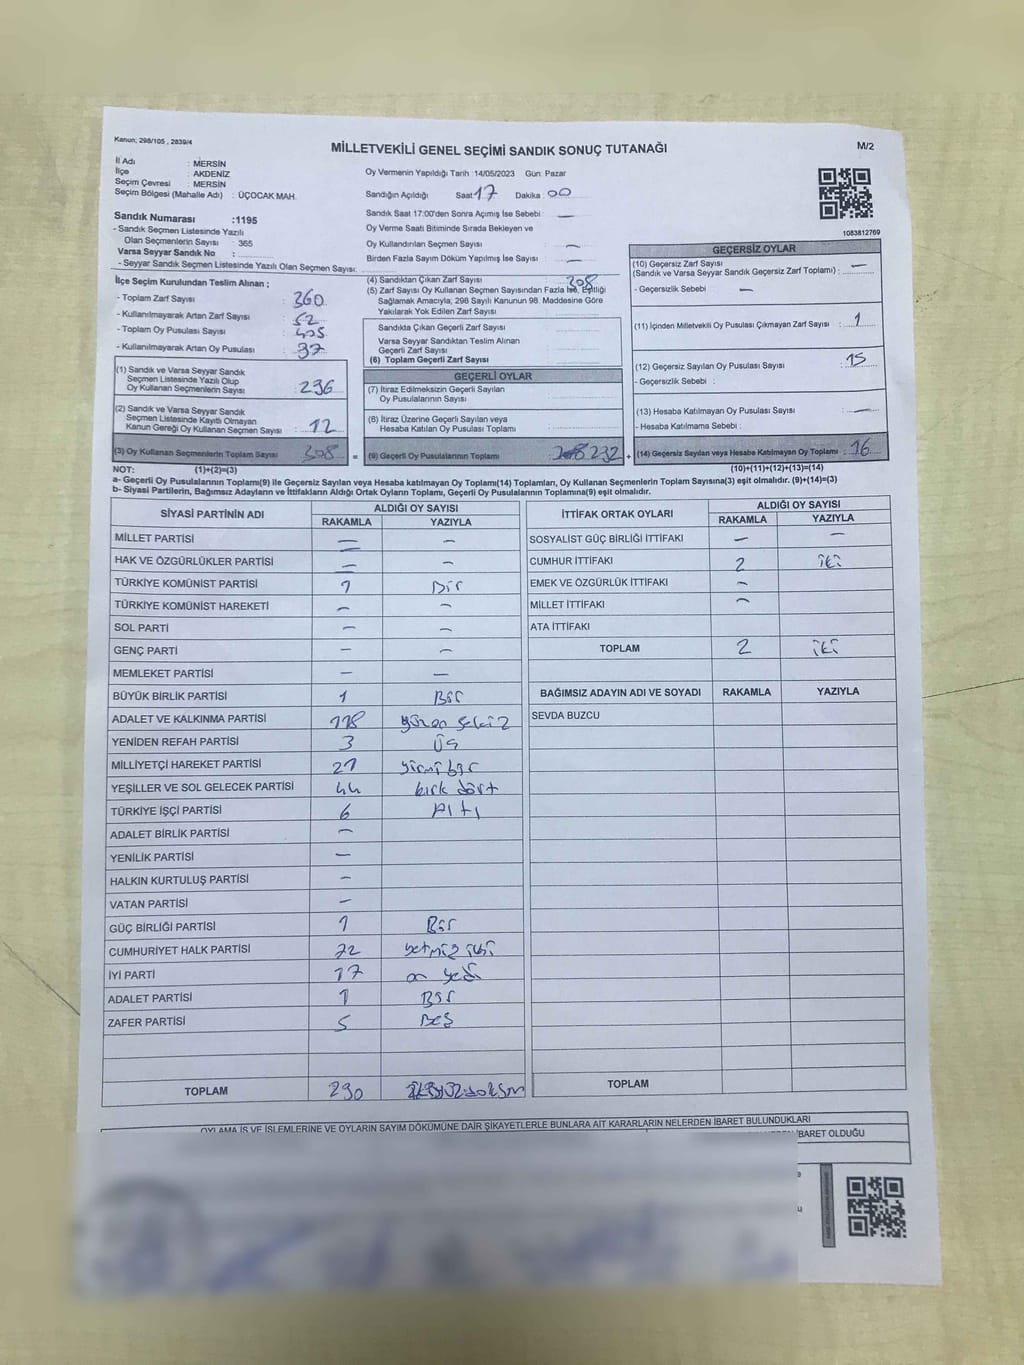 Kanun: 298/105 , 2839/4
MİLLETVEKİLİ GENEL SEÇİMİ SANDIK SONUÇ TUTANAĞI
M/2
İl Adı : MERSİN
İlçe : AKDENİZ
Seçim Çevresi : MERSİN
Seçim Bölgesi (Mahalle Adı) : ÜÇOCAK MAH.
Sandık Numarası :1195
- Sandık Seçmen Listesinde Yazılı
Olan Seçmenlerin Sayısı : 365
Varsa Seyyar Sandık No :
- Seyyar Sandık Seçmen Listesinde Yazılı Olan Seçmen Sayısı:
Oy Vermenin Yapıldığı Tarih : 14/05/2023 Gün: Pazar
Sandığın Açıldığı Saat: 17 Dakika : 00
Sandık Saat 17:00'den Sonra Açımış İse Sebebi : —
Oy Verme Saati Bitiminde Sırada Bekleyen ve
Oy Kullandırılan Seçmen Sayısı : —
Birden Fazla Sayım Döküm Yapılmış İse Sayısı : —
1083812769
İlçe Seçim Kurulundan Teslim Alınan ;
- Toplam Zarf Sayısı : 360
- Kullanılmayarak Artan Zarf Sayısı : 52
- Toplam Oy Pusulası Sayısı : 405
- Kullanılmayarak Artan Oy Pusulası : 37
(1) Sandık ve Varsa Seyyar Sandık
Seçmen Listesinde Yazılı Olup
Oy Kullanan Seçmenlerin Sayısı : 296
(2) Sandık ve Varsa Seyyar Sandık
Seçmen Listesinde Kayıtlı Olmayan
Kanun Gereği Oy Kullanan Seçmen Sayısı : 12
(3) Oy Kullanan Seçmenlerin Toplam Sayısı : 308
(4) Sandıktan Çıkan Zarf Sayısı : 308
(5) Zarf Sayısı Oy Kullanan Seçmen Sayısından Fazla İse, Eşitliği
Sağlamak Amacıyla, 298 Sayılı Kanunun 98. Maddesine Göre
Yakılarak Yok Edilen Zarf Sayısı
Sandıkta Çıkan Geçerli Zarf Sayısı
Varsa Seyyar Sandıktan Teslim Alınan
Geçerli Zarf Sayısı
(6) Toplam Geçerli Zarf Sayısı
GEÇERLİ OYLAR
(7) İtiraz Edilmeksizin Geçerli Sayılan
Oy Pusulalarının Sayısı
(8) İtiraz Üzerine Geçerli Sayılan veya
Hesaba Katılan Oy Pusulası Toplamı
= (9) Geçerli Oy Pusulalarının Toplamı : 232 +
GEÇERSİZ OYLAR
(10) Geçersiz Zarf Sayısı
(Sandık ve Varsa Seyyar Sandık Geçersiz Zarf Toplamı) : —
- Geçersizlik Sebebi : —
(11) İçinden Milletvekili Oy Pusulası Çıkmayan Zarf Sayısı : 1
(12) Geçersiz Sayılan Oy Pusulası Sayısı : 15
- Geçersizlik Sebebi :
(13) Hesaba Katılmayan Oy Pusulası Sayısı : —
- Hesaba Katılmama Sebebi :
(14) Geçersiz Sayılan veya Hesaba Katılmayan Oy Toplamı : 16
NOT: (1)+(2)=(3) (10)+(11)+(12)+(13)=(14)
a- Geçerli Oy Pusulalarının Toplamı(9) ile Geçersiz Sayılan veya Hesaba katılmayan Oy Toplamı(14) Toplamları, Oy Kullanan Seçmenlerin Toplam Sayısına(3) eşit olmalıdır. (9)+(14)=(3)
b- Siyasi Partilerin, Bağımsız Adayların ve İttifakların Aldığı Ortak Oyların Toplamı, Geçerli Oy Pusulalarının Toplamına(9) eşit olmalıdır.
SİYASİ PARTİNİN ADI ALDIĞI OY SAYISI
RAKAMLA YAZIYLA
MİLLET PARTİSİ — —
HAK VE ÖZGÜRLÜKLER PARTİSİ — —
TÜRKİYE KOMÜNİST PARTİSİ 1 Bir
TÜRKİYE KOMÜNİST HAREKETİ — —
SOL PARTİ — —
GENÇ PARTİ — —
MEMLEKET PARTİSİ — —
BÜYÜK BİRLİK PARTİSİ 1 Bir
ADALET VE KALKINMA PARTİSİ 118 yüzon sekiz
YENİDEN REFAH PARTİSİ 3 Üç
MİLLİYETÇİ HAREKET PARTİSİ 21 yirmi bir
YEŞİLLER VE SOL GELECEK PARTİSİ 44 kırk dört
TÜRKİYE İŞÇİ PARTİSİ 6 Altı
ADALET BİRLİK PARTİSİ —
YENİLİK PARTİSİ —
HALKIN KURTULUŞ PARTİSİ —
VATAN PARTİSİ —
GÜÇ BİRLİĞİ PARTİSİ 1 Bir
CUMHURİYET HALK PARTİSİ 72 yetmiş iki
İYİ PARTİ 17 on yedi
ADALET PARTİSİ 1 Bir
ZAFER PARTİSİ 5 Beş
TOPLAM 290
İTTİFAK ORTAK OYLARI ALDIĞI OY SAYISI
RAKAMLA YAZIYLA
SOSYALİST GÜÇ BİRLİĞİ İTTİFAKI — —
CUMHUR İTTİFAKI 2 iki
EMEK VE ÖZGÜRLÜK İTTİFAKI —
MİLLET İTTİFAKI —
ATA İTTİFAKI
TOPLAM 2 iki
BAĞIMSIZ ADAYIN ADI VE SOYADI RAKAMLA YAZIYLA
SEVDA BUZCU
TOPLAM
OYLAMA İŞ VE İŞLEMLERİNE VE OYLARIN SAYIM DÖKÜMÜNE DAİR ŞİKAYETLERLE BUNLARA AİT KARARLARIN NELERDEN İBARET BULUNDUKLARI
İBARET OLDUĞU